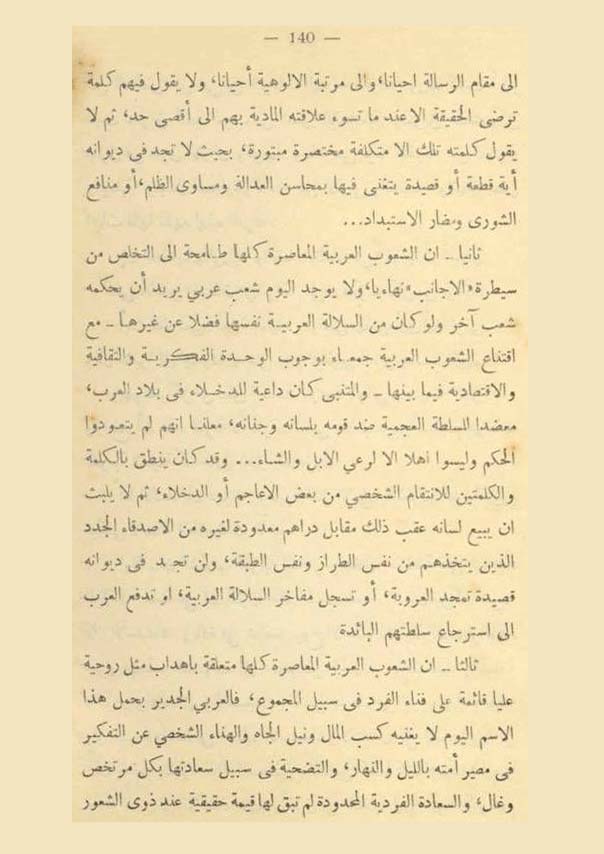 — 140 —
الى مقام الرسالة احيانا، والى مرتبة الالوهية أحيانا، ولا يقول فيهم كلمة
ترضى الحقيقة الا عند ما تسوء علاقته المادية بهم الى أقصى حد، ثم لا
يقول كلمته تلك الا متكلفة مختصرة مبتورة، بحيث لا تجد فى ديوانه
أية قطعة أو قصيدة يتغنى فيها بمحاسن العدالة ومساوى الظلم، أو منافع
الشورى ومضار الاستبداد...
ثانيا ــ ان الشعوب العربية المعاصرة كلها طامحة الى التخلص من
سيطرة «الاجانب» نهاءيا، ولا يوجد اليوم شعب عربي يريد أن يحكمه
شعب آخر ولو كان من السلالة العربية نفسها فضلا عن غيرها ــ مع
اقتناع الشعوب العربية جمعاء بوجوب الوحدة الفكرية والثقافية
والاقتصادية فيما بينها ــ والمتنبى كان داعية للدخلاء فى بلاد العرب،
معضدا للسلطة العجمية ضد قومه بلسانه وجنانه، معلنا انهم لم يتعودوا
الحكم وليسوا اهلا الا لرعي الابل والشاء... وقد كان ينطق بالكلمة
والكلمتين للانتقام الشخصي من بعض الاعاجم أو الدخلاء، ثم لا يلبث
ان يبيع لسانه عقب ذلك مقابل دراهم معدودة لغيره من الاصدقاء الجدد
الذين يتخذهم من نفس الطراز ونفس الطبقة، ولن تجد فى ديوانه
قصيدة تمجد العروبة، أو تسجل مفاخر السلالة العربية، او تدفع العرب
الى استرجاع سلطتهم البائدة
ثالثا ــ ان الشعوب العربية المعاصرة كلها متعلقة باهداب مثل روحية
عليا قائمة على فناء الفرد فى سبيل المجموع، فالعربي الجدير بحمل هذا
الاسم اليوم لا يغنيه كسب المال ونيل الجاه والهناء الشخصي عن التفكير
فى مصير أمته بالليل والنهار، والتضحية فى سبيل سعادتها بكل مرتخص
وغال، والسعادة الفردية المحدودة لم تبق لها قيمة حقيقية عند ذوى الشعور